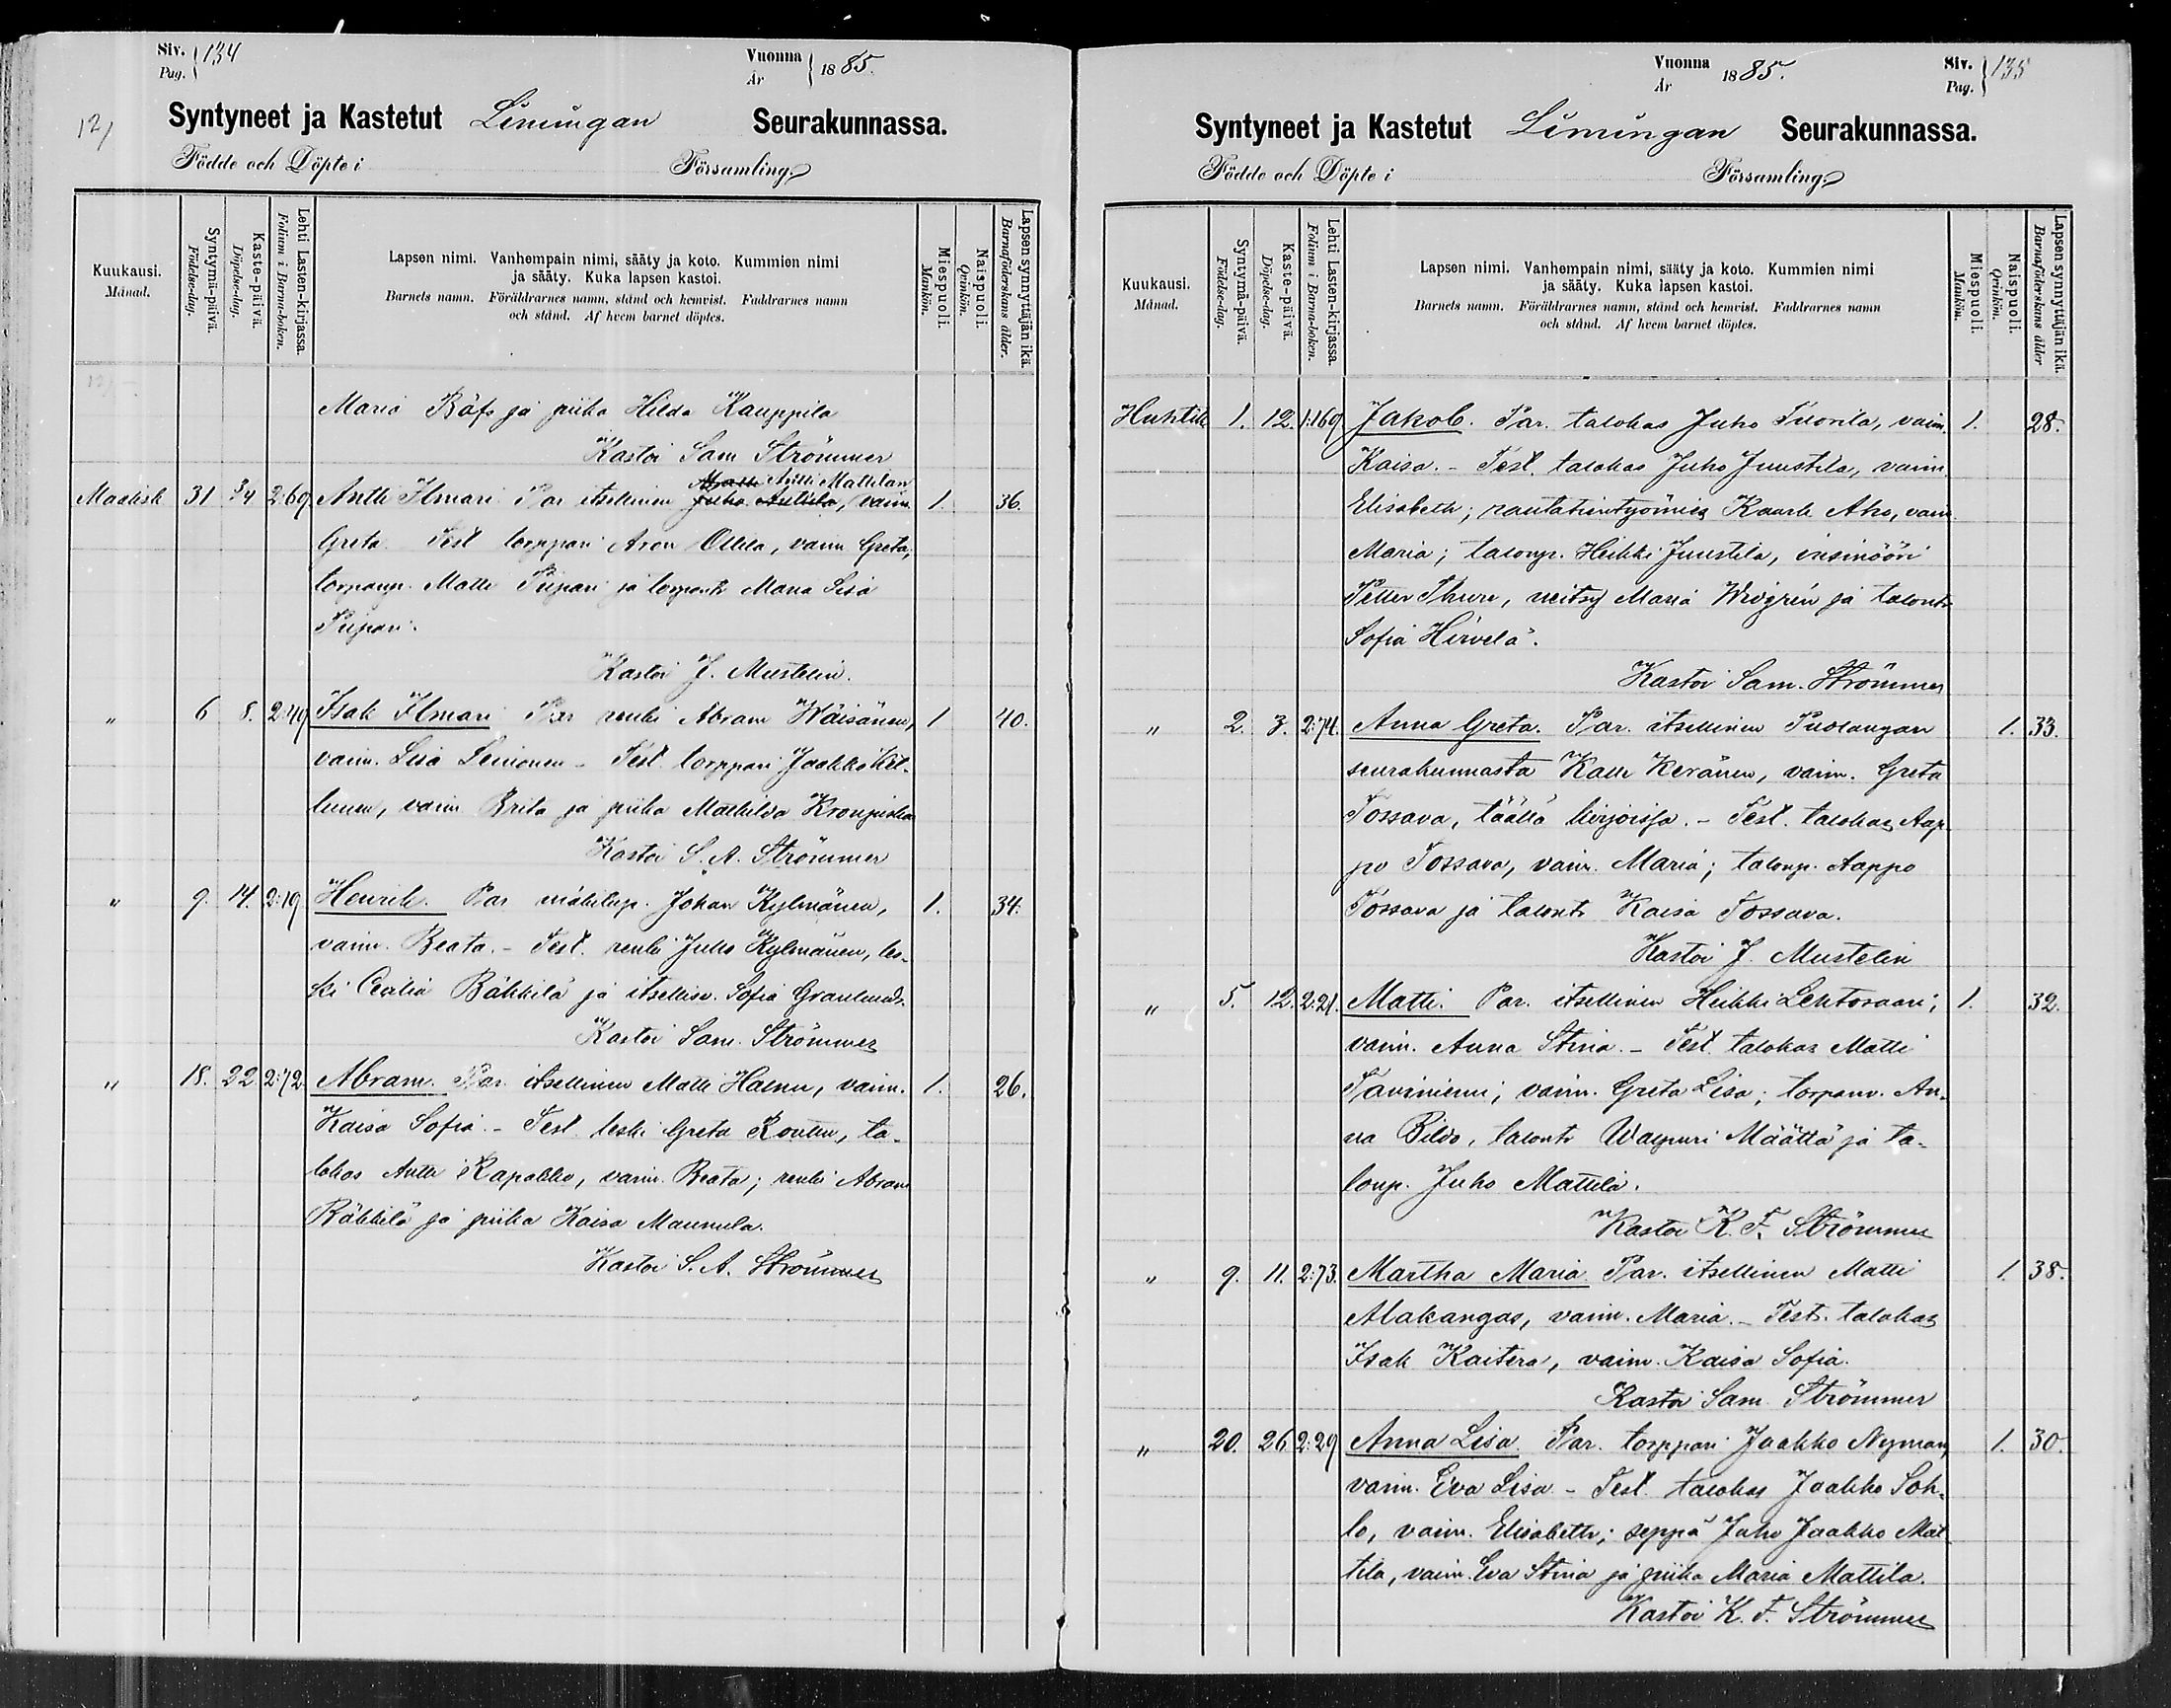 Siv. Pag. 134
Vuonna År 1885.
12/
Syntyneet ja Kastetut Limingan Seurakunnassa.
Födde och Döpte i Församling.
Kuukausi. Månad.
Syntymä-päivä. Födelse-dag.
Kaste-päivä. Döpelse-dag.
Lehti Lasten-kirjassa. Folium i Barna-boken.
Lapsen nimi. Vanhempain nimi, sääty ja koto. Kummien nimi
ja sääty. Kuka lapsen kastoi.
Barnets namn. Föräldrarnes namn, stånd och hemvist. Faddrarnes namn
och stånd. Af hvem barnet döptes.
Miespuoli. Mankön.
Naispuoli. Qvinkön.
Lapsen synnyttäjän ikä. Barnaföderskans ålder.
Maria Räf ja piika Hilda Kauppila
Kastoi Sam Strömmer
Matti Antti Mattilan
Maalisk 31 3/4 2:69 Antti Ilmari Par itsellinen Juho Anttila, vaim. 1. 36.
Greta. Test torppari Aron Ollila, vaim Greta,
torparip. Matti Piipari ja torpantr Maria Lisa
Piipari.
Kastoi J. Mustelin.
" 6 8. 2:49 Isak Ilmari Par renki Abram Wäisänen, 1 40.
vaim. Lisa Leinonen - Test. torppari Jaakko Kil-
lunen, vaim Brita ja piika Mathilda
Kastoi S. A. Strömmer
" 9. 14. 2:19 Henrik. Par mäkitup. Johan Kylmänen, 1. 34.
vaim. Beata. - Test. renki Juho Kylmänen, les-
ki Cecilia Räkkilä ja itsellisv. Sofia Granlund.
Kastoi Sam. Strömmer
" 18. 22 2:72. Abram. Par. itsellinen Matti Halme, vaim. 1. 26.
Kaisa Sofia. - Test leski Greta Routtu, ta-
lokas Antti Rapakko, vaim. Beata; renki Abram
Räkkilä ja piika Kaisa Maunula.
Kastoi S. A. Strömmer
Vuonna År 1885.
Siv. Pag. 135
Syntyneet ja Kastetut Limingan Seurakunnassa.
Födde och Döpte i Församling.
Kuukausi. Månad.
Syntymä-päivä. Födelse-dag.
Kaste-päivä. Döpelse-dag.
Lehti Lasten-kirjassa. Folium i Barna-boken.
Lapsen nimi. Vanhempain nimi, sääty ja koto. Kummien nimi
ja sääty. Kuka lapsen kastoi.
Barnets namn. Föräldrarnes namn, stånd och hemvist. Faddrarnes namn
och stånd. Af hvem barnet döptes.
Miespuoli. Mankön.
Naispuoli. Qvinkön.
Lapsen synnyttäjän ikä. Barnaföderskans ålder
Huhtik 1. 12. 1:169 Jakob. Par. talokas Juho Tuorila, vaim. 1. 28.
Kaisa. - Test. talokas Juho Juustila, vaim.
Elisabeth; rautatientyömies Kaarle Aho, vaim.
Maria; talonp. Heikki Juustila, insinööri
Petter Thure, neitsy Maria Wregrén ja talontr
Sofia Hirvelä.
Kastoi Sam. Strömmer
" 2. 3. 2:74. Anna Greta. Par. itsellinen Puolangan 1. 33.
seurakunnasta Kalle Keränen, vaim. Greta
Tossava, täällä kirjoissa. - Test. talokas Aap-
po Tossava, vaim. Maria; talonp. Aappo
Tossava ja talontr Kaisa Tossava.
Kastoi J. Mustelin
" 5. 12. 2:21. Matti. Par. itsellinen Heikki Lehtosaari; 1. 32.
vaim. Anna Stina. - Test. talokas Matti
Taviniemi; vaim. Greta Lisa; torpanv. An-
na Bildo, talontr Walpuri Määttä ja ta-
lonp. Juho Mattila.
Kastoi K. F. Strömmer
" 9. 11. 2:73. Martha Maria Par. itsellinen Matti 1. 38.
Alakangas, vaim. Maria. - Test. talokas
Isak Kaitera, vaim. Kaisa Sofia.
Kastoi Sam Strömmer
" 20. 26 2:29 Anna Lisa. Par. torppari Jaakko Nyman, 1. 30.
vaim. Eva Lisa - Test. talokas Jaakko Soh-
lo, vaim. Elisabeth; seppä Juho Jaakko Mat-
tila, vaim. Eva Stina ja piika Maria Mattila.
Kastoi K. F. Strömmer